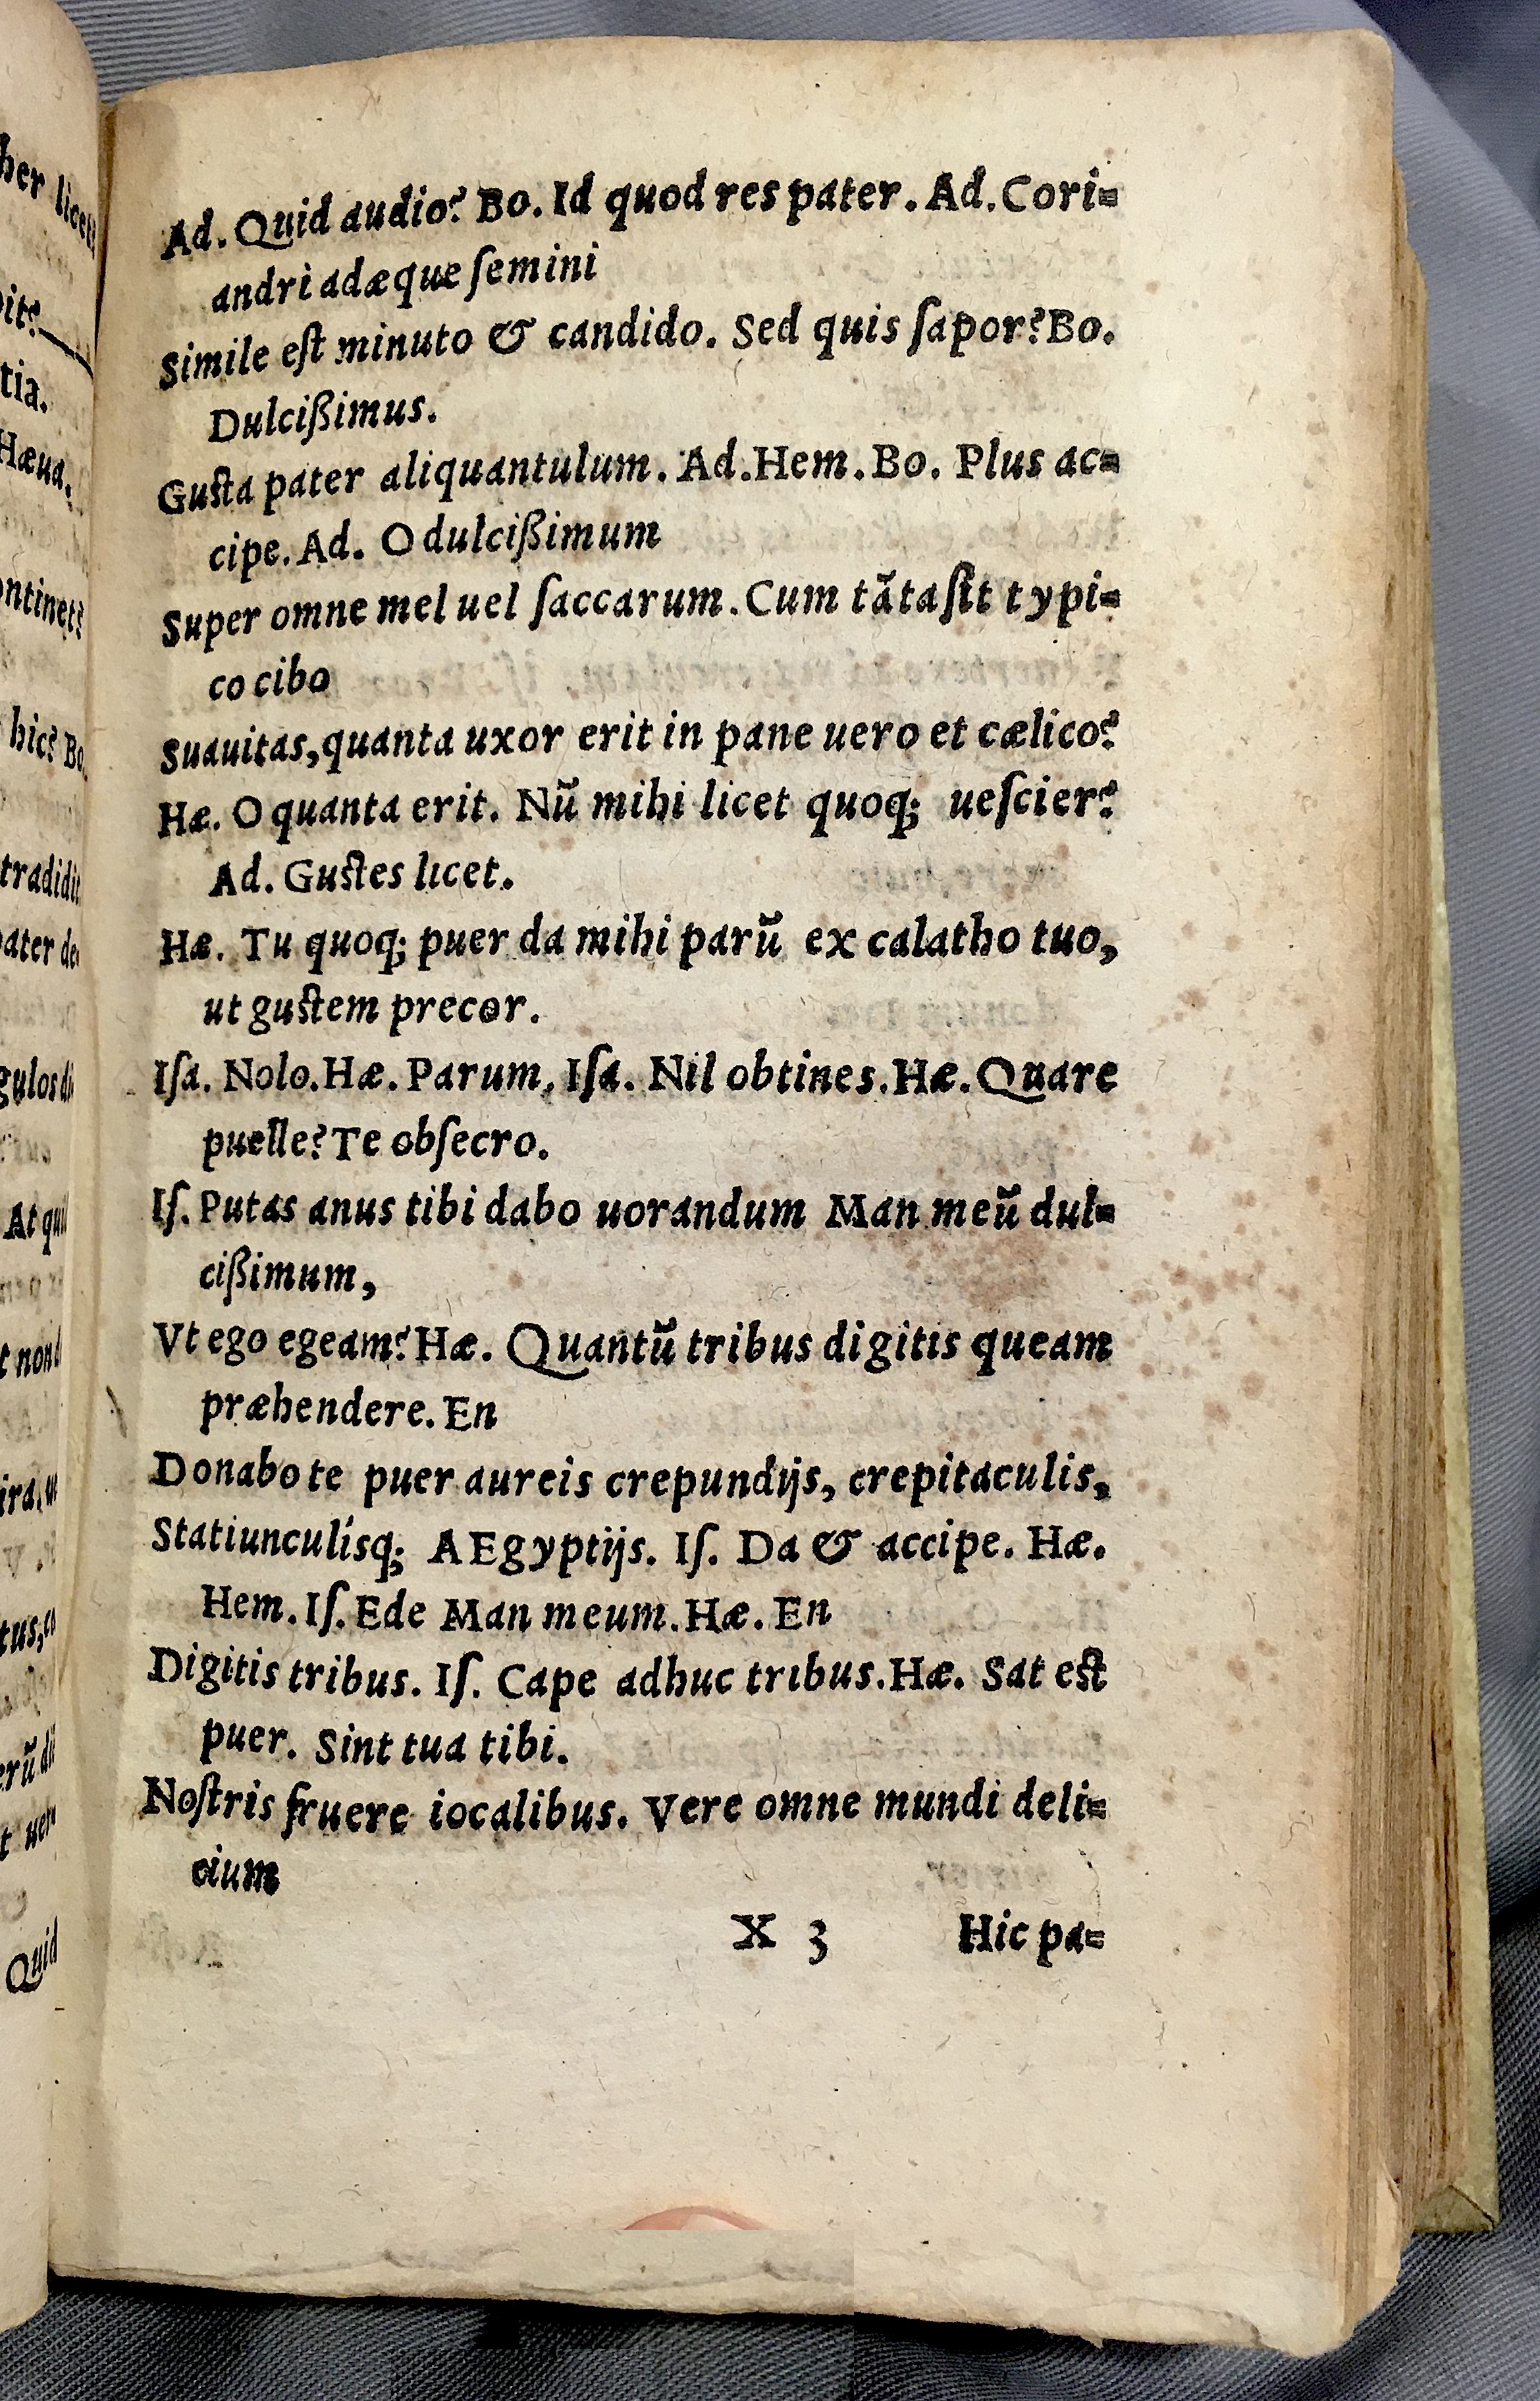 Ad. Quid audio? Bo. Id quod res pater. Ad. Cori=
andri adæque ſemini
Simile eſt minuto & candido. Sed quis ſapor? Bo.
Dulcißimus.
Guſta pater aliquantulum. Ad. Hem. Bo. Plus ac=
cipe. Ad. O dulcißimum
Super omne mel uel ſaccarum. Cum tãta ſit typi=
co cibo
Suauitas, quanta uxor erit in pane uero et cælico?
Hæ. O quanta erit. Nũ mihi licet quoq; ueſcier?
Ad. Guſtes licet.
Hæ. Tu quoq; puer da mihi parũ ex calatho tuo,
ut guſtem precor.
Iſa. Nolo. Hæ. Parum, Iſa. Nil obtines. Hæ. Quare
puelle? Te obſecro.
Iſ. Putas anus tibi dabo uorandum Man meũ dul=
cißimum,
Vt ego egeam? Hæ. Quantũ tribus digitis queam
præhendere. En
Donabo te puer aureis crepundijs, crepitaculis,
Statiunculísq; AEgyptijs. Iſ. Da & accipe. Hæ.
Hem. Iſ. Ede Man meum. Hæ. En
Digitis tribus. Iſ. Cape adhuc tribus. Hæ. Sat eſt
puer. Sint tua tibi.
Noſtris fruere iocalibus. Vere omne mundi deli=
cium
X 3 Hic pa=